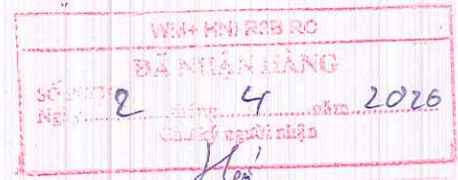 WM+ HNI R3B RC
ĐÃ NHẬN HÀNG
SỐ
Ngày 2 tháng 4 năm 2026
Chữ ký người nhận